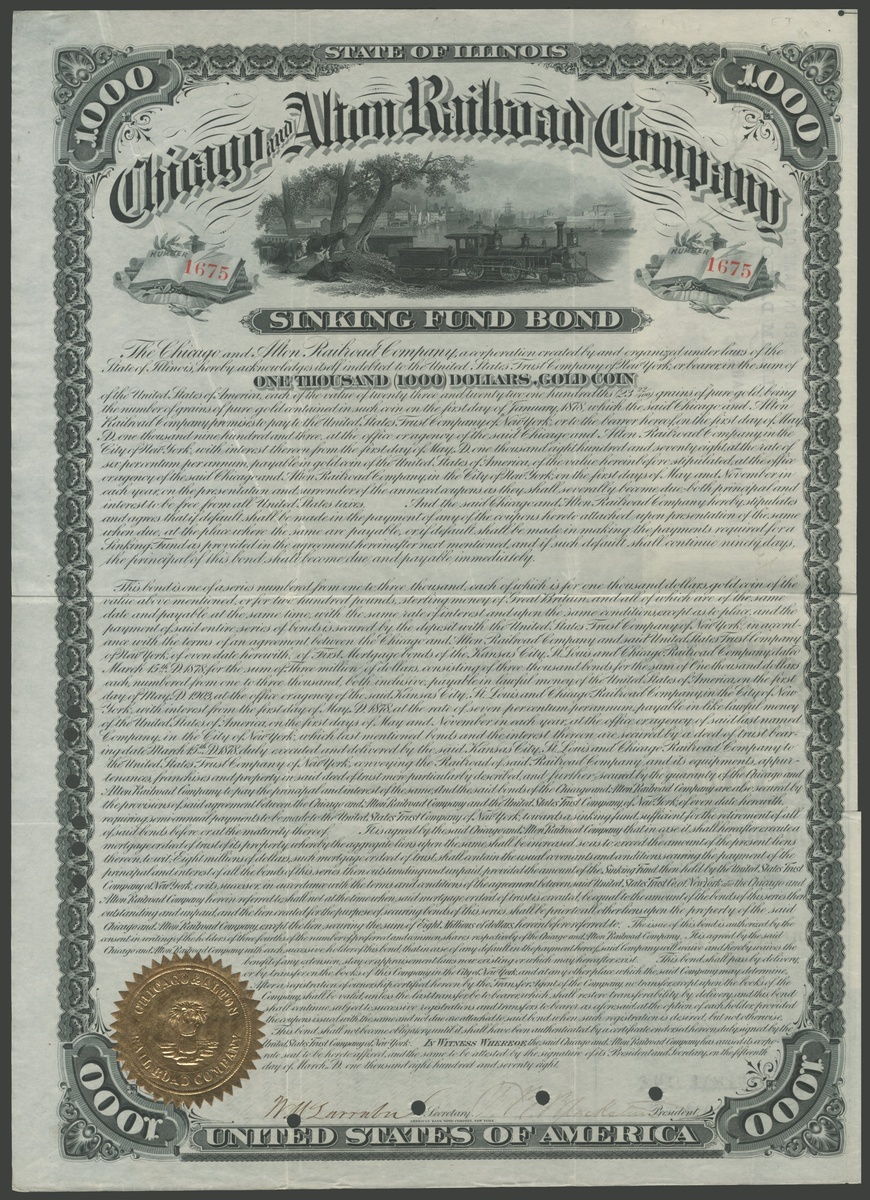 STATE OF ILLINOIS
1000
1000
Chicago and Alton Railroad Company
NUMBER 1675
NUMBER 1675
SINKING FUND BOND
The Chicago and Alton Railroad Company, a corporation created by and organized under laws of the
State of Illinois, hereby acknowledges itself indebted to the United States Trust Company of New York, or bearer, in the sum of
ONE THOUSAND (1000) DOLLARS, GOLD COIN
of the United States of America, each of the value of twenty three and twenty two one hundredths (23 22/100) grains of pure gold, being
the number of grains of pure gold contained in such coin on the first day of January, 1878, which the said Chicago and Alton
Railroad Company promises to pay to the United States Trust Company of New York, or to the bearer hereof, on the first day of May
A.D. one thousand nine hundred and three, at the office or agency of the said Chicago and Alton Railroad Company in the
City of New York, with interest thereon from the first day of May A.D. one thousand eight hundred and seventy eight, at the rate of
six per centum per annum, payable in gold coin of the United States of America, of the value hereinbefore stipulated, at the office
or agency of the said Chicago and Alton Railroad Company, in the City of New York, on the first days of May and November in
each year, on the presentation and surrender of the annexed coupons as they shall severally become due both principal and
interest to be free from all United States taxes. And the said Chicago and Alton Railroad Company hereby stipulates
and agrees that if default shall be made in the payment of any of the coupons hereto attached, upon presentation of the same
when due, at the place where the same are payable, or if default shall be made in making the payments required for a
Sinking Fund as provided in the agreement hereinafter next mentioned, and if such default shall continue ninety days,
the principal of this bond shall become due and payable immediately.
This bond is one of a series numbered from one to three thousand, each of which is for one thousand dollars, gold coin, of the
value above mentioned, or for two hundred pounds, sterling money of Great Britain, and all of which are of the same
date and payable at the same time, with the same rate of interest and upon the same conditions, except as to place, and the
payment of said entire series of bonds is secured by the deposit with the United States Trust Company of New York, in accord-
ance with the terms of an agreement between the Chicago and Alton Railroad Company and said United States Trust Company
of New York, of even date herewith, of First Mortgage bonds of the Kansas City, St. Louis and Chicago Railroad Company, date
March 15th A.D. 1878, for the sum of Three millions of dollars, consisting of three thousand bonds for the sum of One thousand dollars
each, numbered from one to three thousand, both inclusive, payable in lawful money of the United States of America, on the first
day of May, A.D. 1903, at the office or agency of the said Kansas City, St. Louis and Chicago Railroad Company, in the City of New
York, with interest from the first day of May A.D. 1878, at the rate of seven per centum per annum, payable in like lawful money
of the United States of America, on the first days of May and November in each year, at the office or agency of said last named
Company, in the City of New York; which last mentioned bonds and the interest thereon, are secured by a deed of trust bear-
ing date March 15th A.D. 1878, duly executed and delivered by the said Kansas City, St. Louis and Chicago Railroad Company to
the United States Trust Company of New York, conveying the Railroad of said Railroad Company and its equipments, appur-
tenances, franchises and property in said deed of trust more particularly described, and further secured by the guaranty of the Chicago and
Alton Railroad Company to pay the principal and interest of the same. And the said bonds of the Chicago and Alton Railroad Company are also secured by
the provisions of said agreement between the Chicago and Alton Railroad Company and the United States Trust Company of New York, of even date herewith,
requiring semi-annual payments to be made to the United States Trust Company of New York, towards a sinking fund, sufficient for the retirement of all
of said bonds before or at the maturity thereof. It is agreed by the said Chicago and Alton Railroad Company that in case it shall hereafter execute a
mortgage or deed of trust of its property whereby the aggregate liens upon the same shall be increased so as to exceed the amount of the present liens
thereon, to wit, Eight millions of dollars, such mortgage or deed of trust, shall contain the usual covenants and conditions securing the payment of the
principal and interest of all the bonds of this series then outstanding and unpaid, provided the amount of the Sinking Fund then held by the United States Trust
Company of New York, or its successor, in accordance with the terms and conditions of the agreement between said United States Trust Co. of New York and the Chicago and
Alton Railroad Company herein referred to, shall not at the time when said mortgage or deed of trust is executed, be equal to the amount of the bonds of this series then
outstanding and unpaid, and the lien created for the purpose of securing bonds of this series shall be prior to all other liens upon the property of the said
Chicago and Alton Railroad Company, except the lien securing the sum of Eight Millions of dollars, herein before referred to. The issue of this bond is authorized by the
consent in writing of the holders of three fourths of the number of preferred and common shares respectively of the Chicago and Alton Railroad Company. It is agreed by the said
Chicago and Alton Railroad Company with each successive holder of this bond, that in case of any default in the payment thereof, said Company will waive and hereby waives the
benefit of any extension, stay or appraisement laws now existing or which may hereafter exist. This bond shall pass by delivery,
or by transfer on the books of this Company in the City of New York, and at any other place which the said Company may determine.
After a registration of ownership certified hereon by the Transfer Agent of the Company, no transfer except upon the books of the
Company, shall be valid, unless the last transfer be to bearer, which shall restore transferability by delivery, and this bond
shall continue subject to successive registrations and transfers to bearer as aforesaid at the option of each holder, provided
the coupons issued with the same and not due are attached to said bond, when such registration is desired, but not otherwise.
This bond shall not become obligatory until it shall have been authenticated by a certificate endorsed hereon, duly signed by the
United States Trust Company of New York. IN WITNESS WHEREOF, the said Chicago and Alton Railroad Company has caused its corpo-
rate seal to be hereto affixed, and the same to be attested by the signature of its President and Secretary, on the fifteenth
day of March A.D. one thousand eight hundred and seventy eight.
CHICAGO & ALTON
RAIL ROAD COMPANY
Secretary. President
AMERICAN BANK NOTE COMPANY, NEW YORK
1000
1000
UNITED STATES OF AMERICA